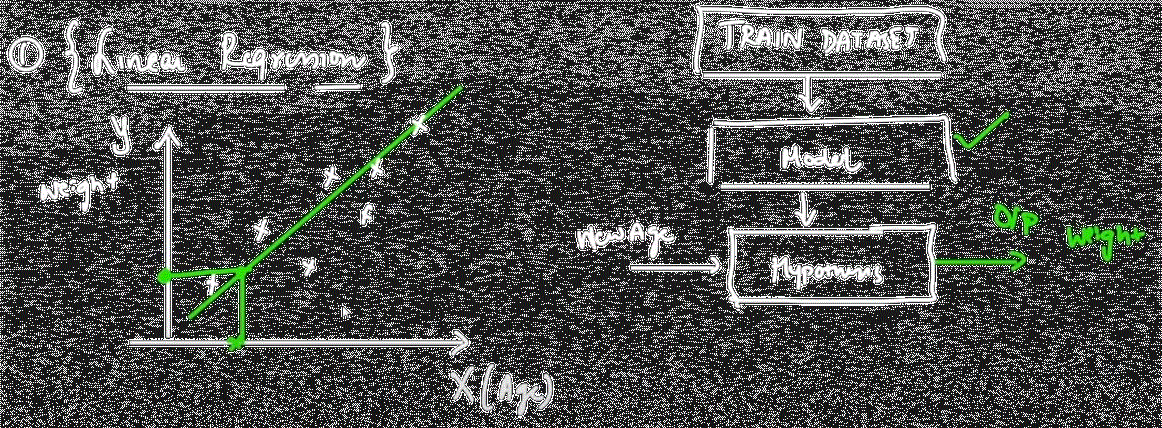 ① { Linear Regression }
y
Weight
X (Age)
TRAIN DATASET
Model
New Age
Hypothesis
O/P
Weight